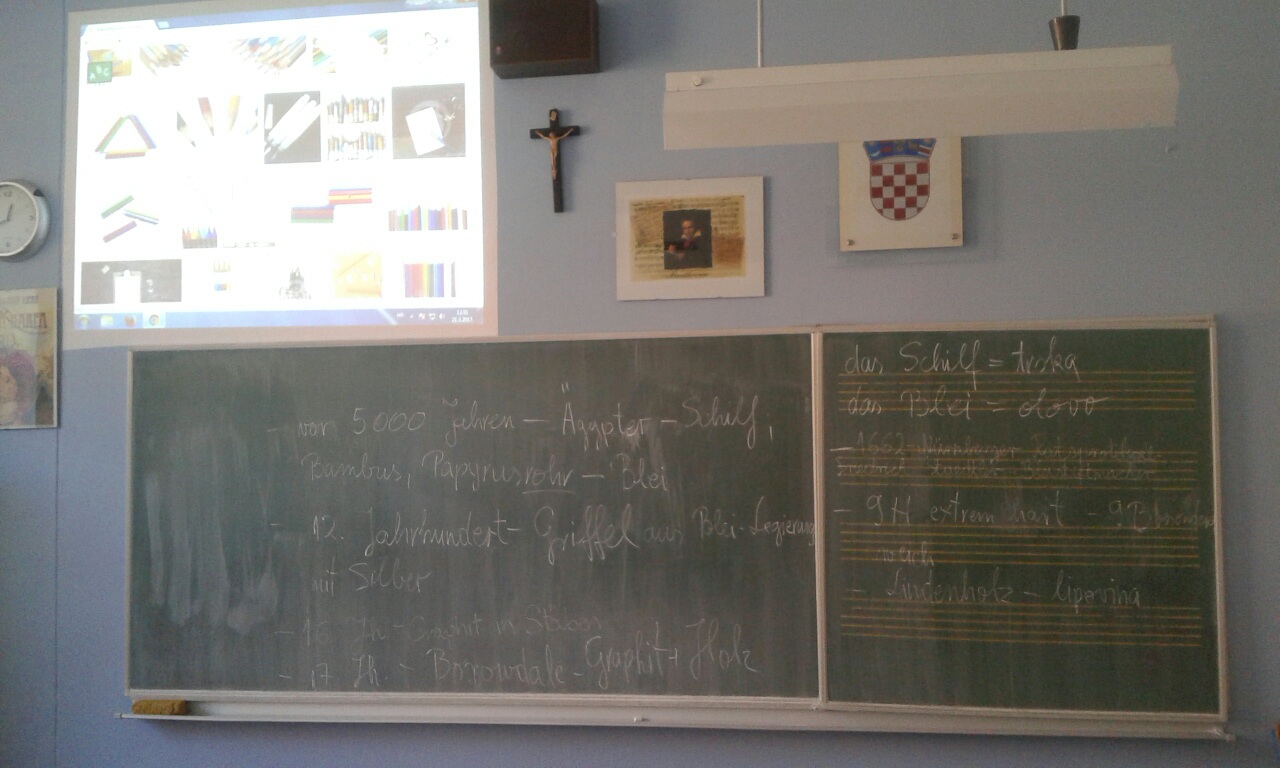 ABC
- vor 5000 Jahren - Ägypter - Schilf,
Bambus, Papyrusrohr - Blei
- 12. Jahrhundert - Griffel aus Blei-Legierung
mit Silber
- 16. Jh. - Graphit in Stäben
- 17 Jh. - Borrowdale - Graphit + Holz
das Schilf = trska
das Blei = olovo
- 1662 Nürnberger
- 9H extrem hart - 9B besonders
weich
- Lindenholz - lipovina